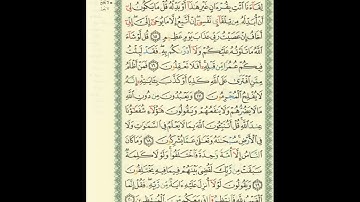 لِقَآءَنَا ٱئْتِ بِقُرْءَانٍ غَيْرِ هَٰذَآ أَوْ بَدِّلْهُ قُلْ مَا يَكُونُ لِىٓ
أَنْ أُبَدِّلَهُۥ مِن تِلْقَآئِ نَفْسِىٓ إِنْ أَتَّبِعُ إِلَّا مَا يُوحَىٰٓ إِلَىَّ إِنِّىٓ
أَخَافُ إِنْ عَصَيْتُ رَبِّى عَذَابَ يَوْمٍ عَظِيمٍ ١٥ قُل لَّوْ شَآءَ
ٱللَّهُ مَا تَلَوْتُهُۥ عَلَيْكُمْ وَلَآ أَدْرَىٰكُم بِهِۦ فَقَدْ لَبِثْتُ
فِيكُمْ عُمُرًا مِّن قَبْلِهِۦٓ أَفَلَا تَعْقِلُونَ ١٦ فَمَنْ أَظْلَمُ
مِمَّنِ ٱفْتَرَىٰ عَلَى ٱللَّهِ كَذِبًا أَوْ كَذَّبَ بِـَٔايَٰتِهِۦٓ إِنَّهُۥ
لَا يُفْلِحُ ٱلْمُجْرِمُونَ ١٧ وَيَعْبُدُونَ مِن دُونِ ٱللَّهِ
مَا لَا يَضُرُّهُمْ وَلَا يَنفَعُهُمْ وَيَقُولُونَ هَٰٓؤُلَآءِ شُفَعَٰٓؤُنَا
عِندَ ٱللَّهِ قُلْ أَتُنَبِّـُٔونَ ٱللَّهَ بِمَا لَا يَعْلَمُ فِى ٱلسَّمَٰوَٰتِ وَلَا
فِى ٱلْأَرْضِ سُبْحَٰنَهُۥ وَتَعَٰلَىٰ عَمَّا يُشْرِكُونَ ١٨ وَمَا كَانَ
ٱلنَّاسُ إِلَّآ أُمَّةً وَٰحِدَةً فَٱخْتَلَفُوا۟ وَلَوْلَا كَلِمَةٌ
سَبَقَتْ مِن رَّبِّكَ لَقُضِىَ بَيْنَهُمْ فِيمَا فِيهِ يَخْتَلِفُونَ ١٩
وَيَقُولُونَ لَوْلَآ أُنزِلَ عَلَيْهِ ءَايَةٌ مِّن رَّبِّهِۦ فَقُلْ إِنَّمَا
ٱلْغَيْبُ لِلَّهِ فَٱنتَظِرُوٓا۟ إِنِّى مَعَكُم مِّنَ ٱلْمُنتَظِرِينَ